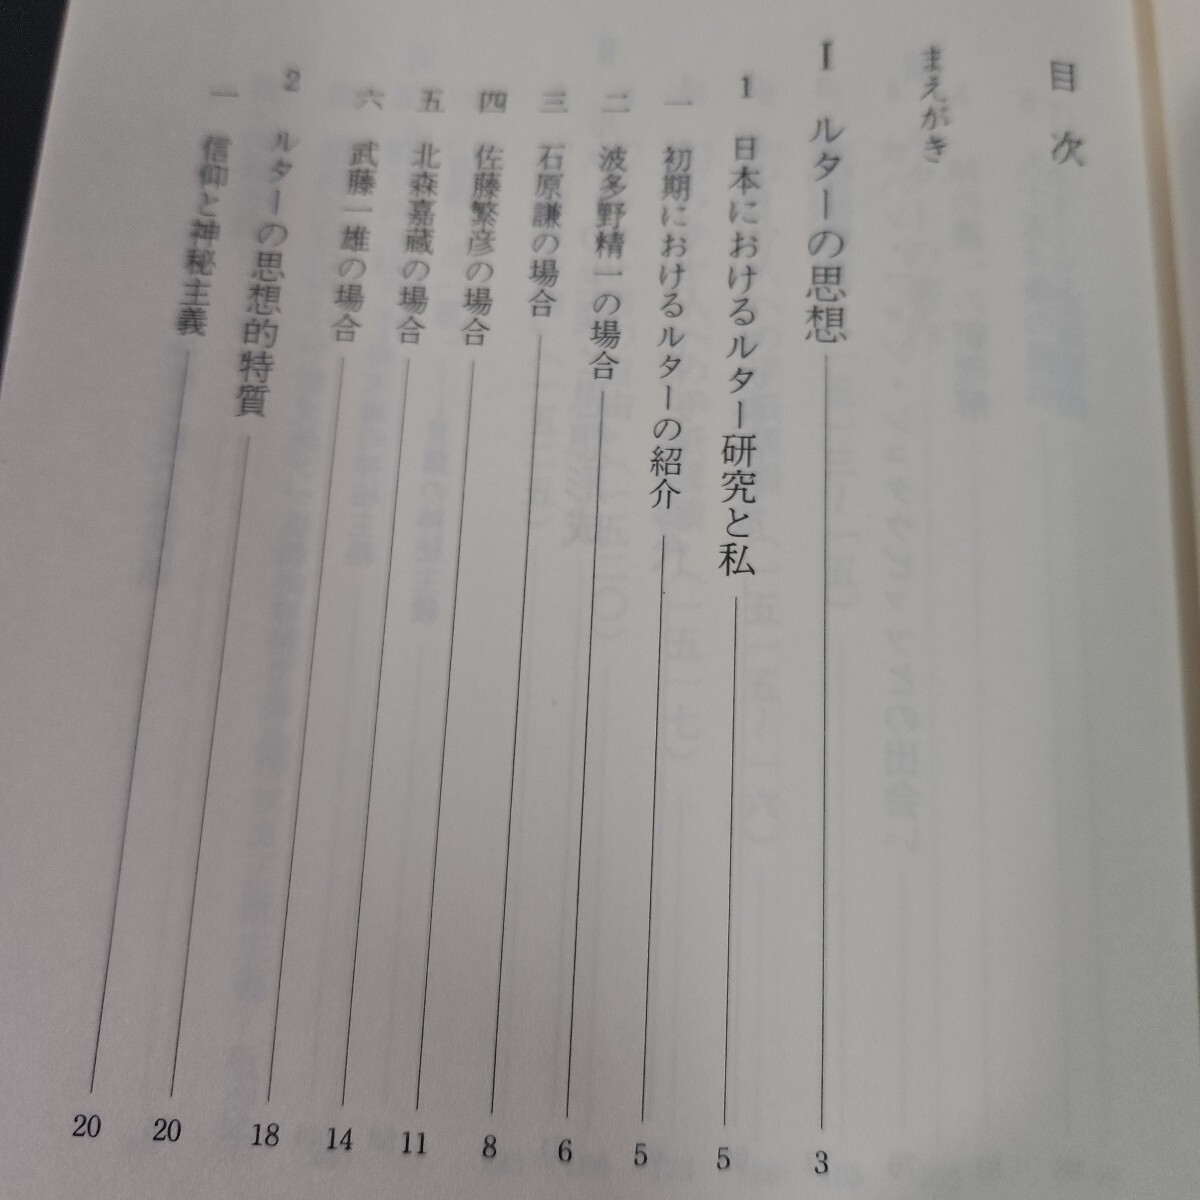 目次
まえがき
Ⅰ ルターの思想 3
1 日本におけるルター研究と私 5
一 初期におけるルターの紹介 5
二 波多野精一の場合 6
三 石原謙の場合 8
四 佐藤繁彦の場合 11
五 北森嘉蔵の場合 14
六 武藤一雄の場合 18
2 ルターの思想的特質 20
一 信仰と神秘主義 20